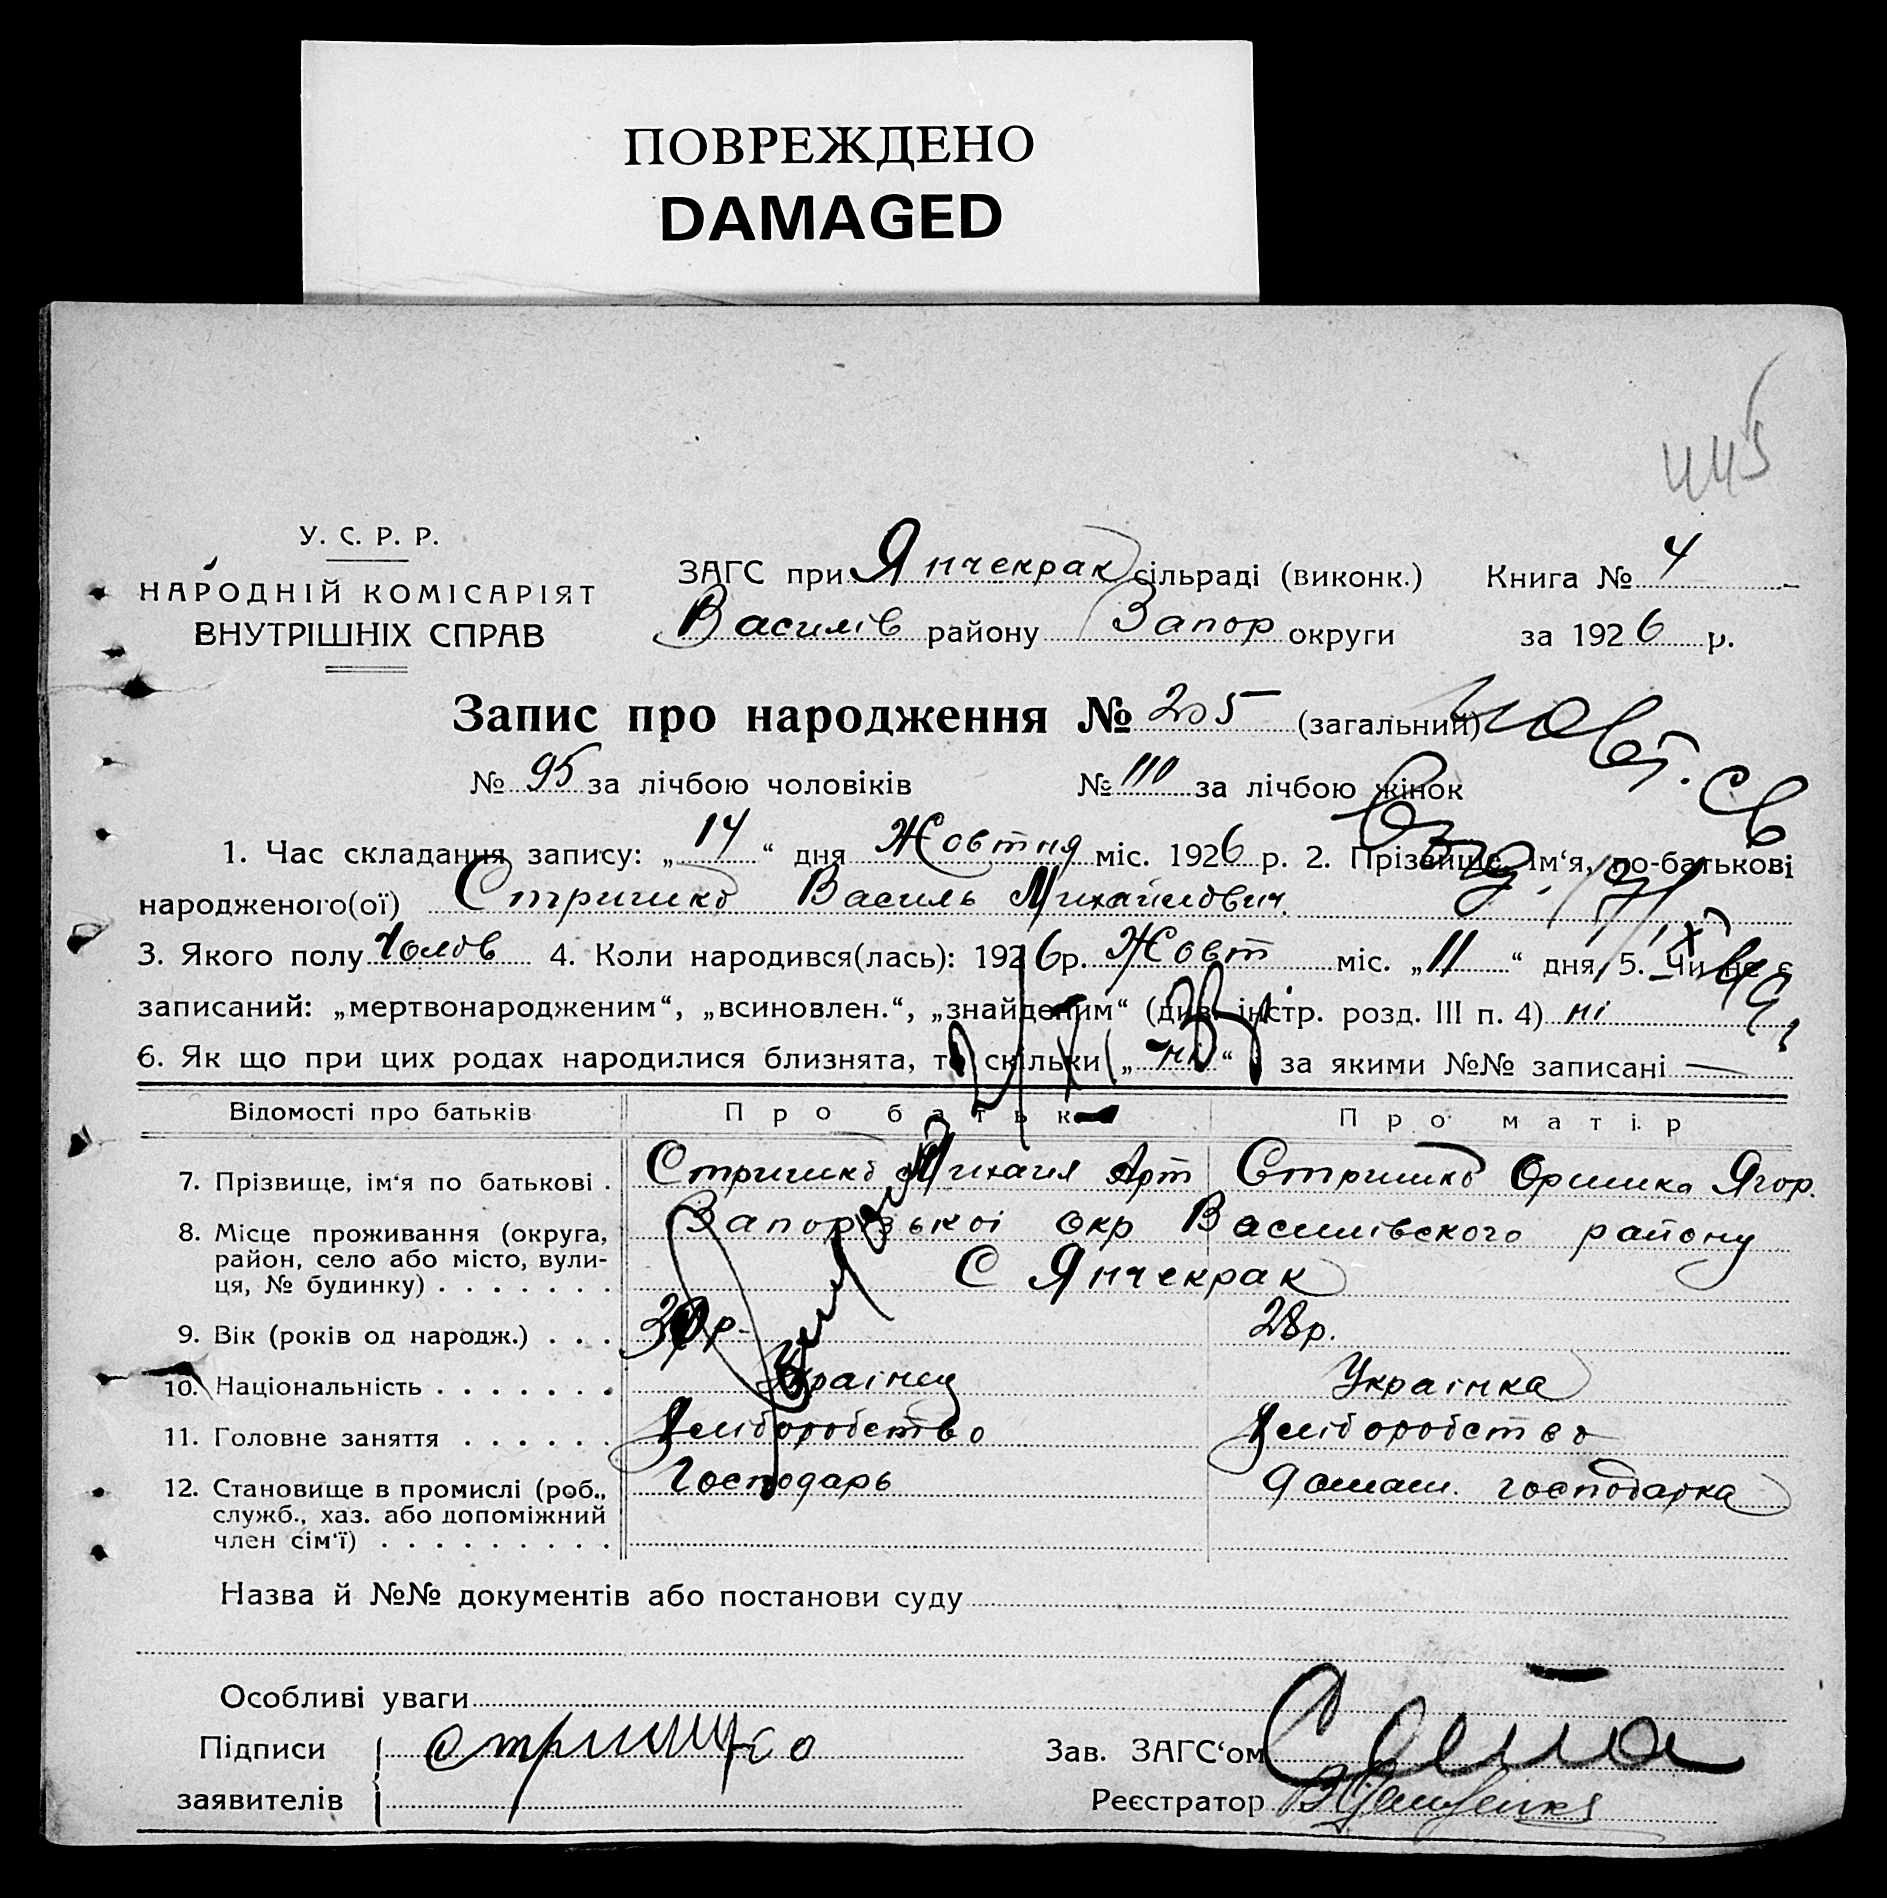 ПОВРЕЖДЕНО
DAMAGED
445
У. С. Р. Р.
НАРОДНІЙ КОМІСАРІЯТ
ВНУТРІШНІХ СПРАВ
ЗАГС при Янчекрак сільраді (виконк.) Книга № 4
Василів району Запор округи за 1926 р.
Запис про народження № 205 (загальний)
№ 95 за лічбою чоловіків № 110 за лічбою жінок
1. Час складання запису: „14“ дня Жовтня міс. 1926 р. 2. Прізвище, ім‘я, по-батькові
народженого(ої) Стришко Василь Михайлович.
3. Якого полу Чолов 4. Коли народився(лась): 1926 р. Жовт міс. „11“ дня, 5. Чи не є
записаний: „мертвонародженим“, „всиновлен.“, „знайденим“ (див. інстр. розд. III п. 4) ні
6. Як що при цих родах народилися близнята, то скільки „ні“ за якими №№ записані —
Відомості про батьків Про батька Про матір
7. Прізвище, ім‘я по батькові . Стришко Михаил Арт Стришко Оришка Ягор.
8. Місце проживання (округа, Запорізькоі окр Василівского району
район, село або місто, вули- С Янчекрак
ця, № будинку) . . . . . . .
9. Вік (років од народж.) . . . 30р. 28р.
10. Національність . . . . . . . Украінец Украінка
11. Головне заняття . . . . . . Хліборобство Хліборобство
12. Становище в промислі (роб., Господарь домаш. господарка
служб., хаз. або допоміжний
член сім‘ї) . . . . . . . . .
Назва й №№ документів або постанови суду
Особливі уваги
Підписи стришко Зав. ЗАГС‘ом
заявителів Реєстратор